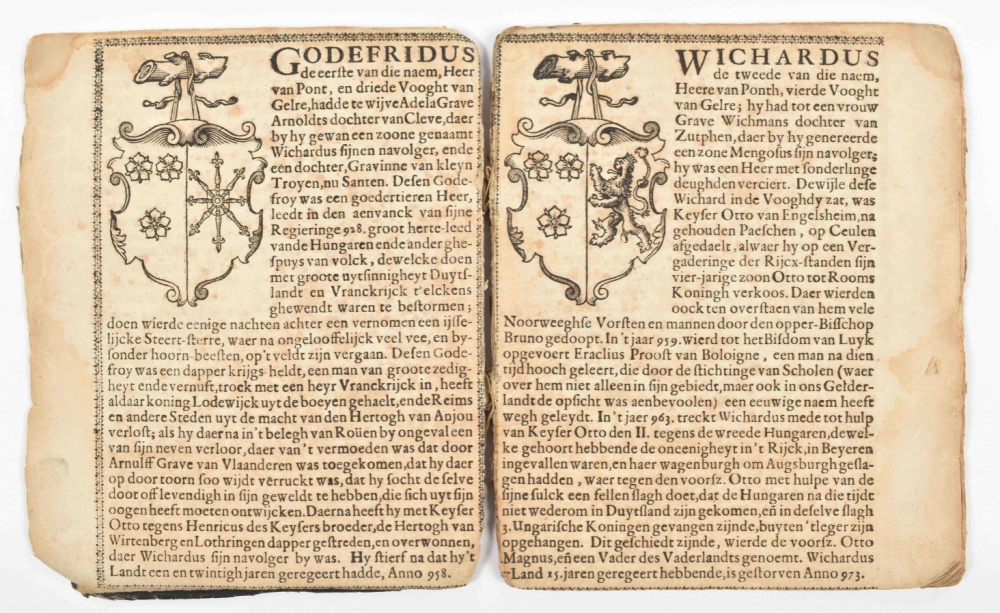 GODEFRIDUS
de eerste van die naem, Heer
van Pont, en driede Vooght van
Gelre, hadde te wijve Adela Grave
Arnoldts dochter van Cleve, daer
by hy gewan een zoone genaamt
Wichardus sijnen navolger, ende
een dochter, Gravinne van kleyn
Troyen, nu Santen. Desen Gode-
froy was een goedertieren Heer,
leedt in den aenvanck van sijne
Regieringe 928. groot herte-leed
vande Hungaren ende ander ghe-
spuys van volck, dewelcke doen
met groote uytsinnigheyt Duyts-
landt en Vranckrijck t'elckens
ghewendt waren te bestormen;
doen wierde eenige nachten achter een vernomen een ijsse-
lijcke Steert-sterre, waer na ongelooffelijck veel vee, en by-
sonder hoorn-beesten, op't veldt zijn vergaan. Desen Gode-
froy was een dapper krijgs-heldt, een man van groote zedig-
heyt ende vernuft, trock met een heyr Vranckrijck in, heeft
aldaar koning Lodewijck uyt de boeyen gehaelt, ende Reims
en andere Steden uyt de macht van den Hertogh van Anjou
verlost; als hy daer na in't belegh van Roüen by ongeval een
van sijn neven verloor, daer van't vermoeden was dat door
Arnulff Grave van Vlaanderen was toegekomen, dat hy daer
op door toorn soo wijdt verruckt was, dat hy socht de selve
doot off levendigh in sijn geweldt te hebben, die sich uyt sijn
oogen heeft moeten ontwijcken. Daerna heeft hy met Keyser
Otto tegens Henricus des Keysers broeder, de Hertogh van
Wirtenberg en Lothringen dapper gestreden, en overwonnen,
daer Wichardus sijn navolger by was. Hy stierf na dat hy't
Landt een en twintigh jaren geregeert hadde, Anno 958.
WICHARDUS
de tweede van die naem,
Heere van Ponth, vierde Vooght
van Gelre; hy had tot een vrouw
Grave Wichmans dochter van
Zutphen, daer by hy genereerde
een zone Mengosus sijn navolger;
hy was een Heer met sonderlinge
deughden verciert. Dewijle dese
Wichard in de Vooghdy zat, was
Keyser Otto van Engelsheim, na
gehouden Paeschen, op Ceulen
afgedaelt, alwaer hy op een Ver-
gaderinge der Rijcx-standen sijn
vier-jarige zoon Otto tot Rooms
Koningh verkoos. Daer wierden
oock ten overstaen van hem vele
Noorweeghse Vorsten en mannen door den opper-Bisschop
Bruno gedoopt. In't jaar 959. wierd tot het Bisdom van Luyk
opgevoert Eraclius Proost van Boloigne, een man na dien
tijd hooch geleert, die door de stichtinge van Scholen (waer
over hem niet alleen in sijn gebiedt, maer ook in ons Gelder-
landt de opsicht was aenbevoolen) een eeuwige naem heeft
wegh geleydt. In't jaer 963. treckt Wichardus mede tot hulp
van Keyser Otto den II. tegens de wreede Hungaren, dewel-
ke gehoort hebbende de oneenigheyt in't Rijck, in Beyeren
ingevallen waren, en haer wagenburgh om Augsburgh gesla-
gen hadden, waer tegen den voorsz. Otto met hulpe van de
sijne sulck een fellen slagh doet, dat de Hungaren na die tijdt
niet wederom in Duytsland zijn gekomen, eñ in deselve slagh
3. Ungarische Koningen gevangen zijnde, buyten 't leger zijn
opgehangen. Dit geschiedt zijnde, wierde de voorsz. Otto
Magnus, eñ een Vader des Vaderlandts genoemt. Wichardus
Land 15. jaren geregeert hebbende, is gestorven Anno 973.